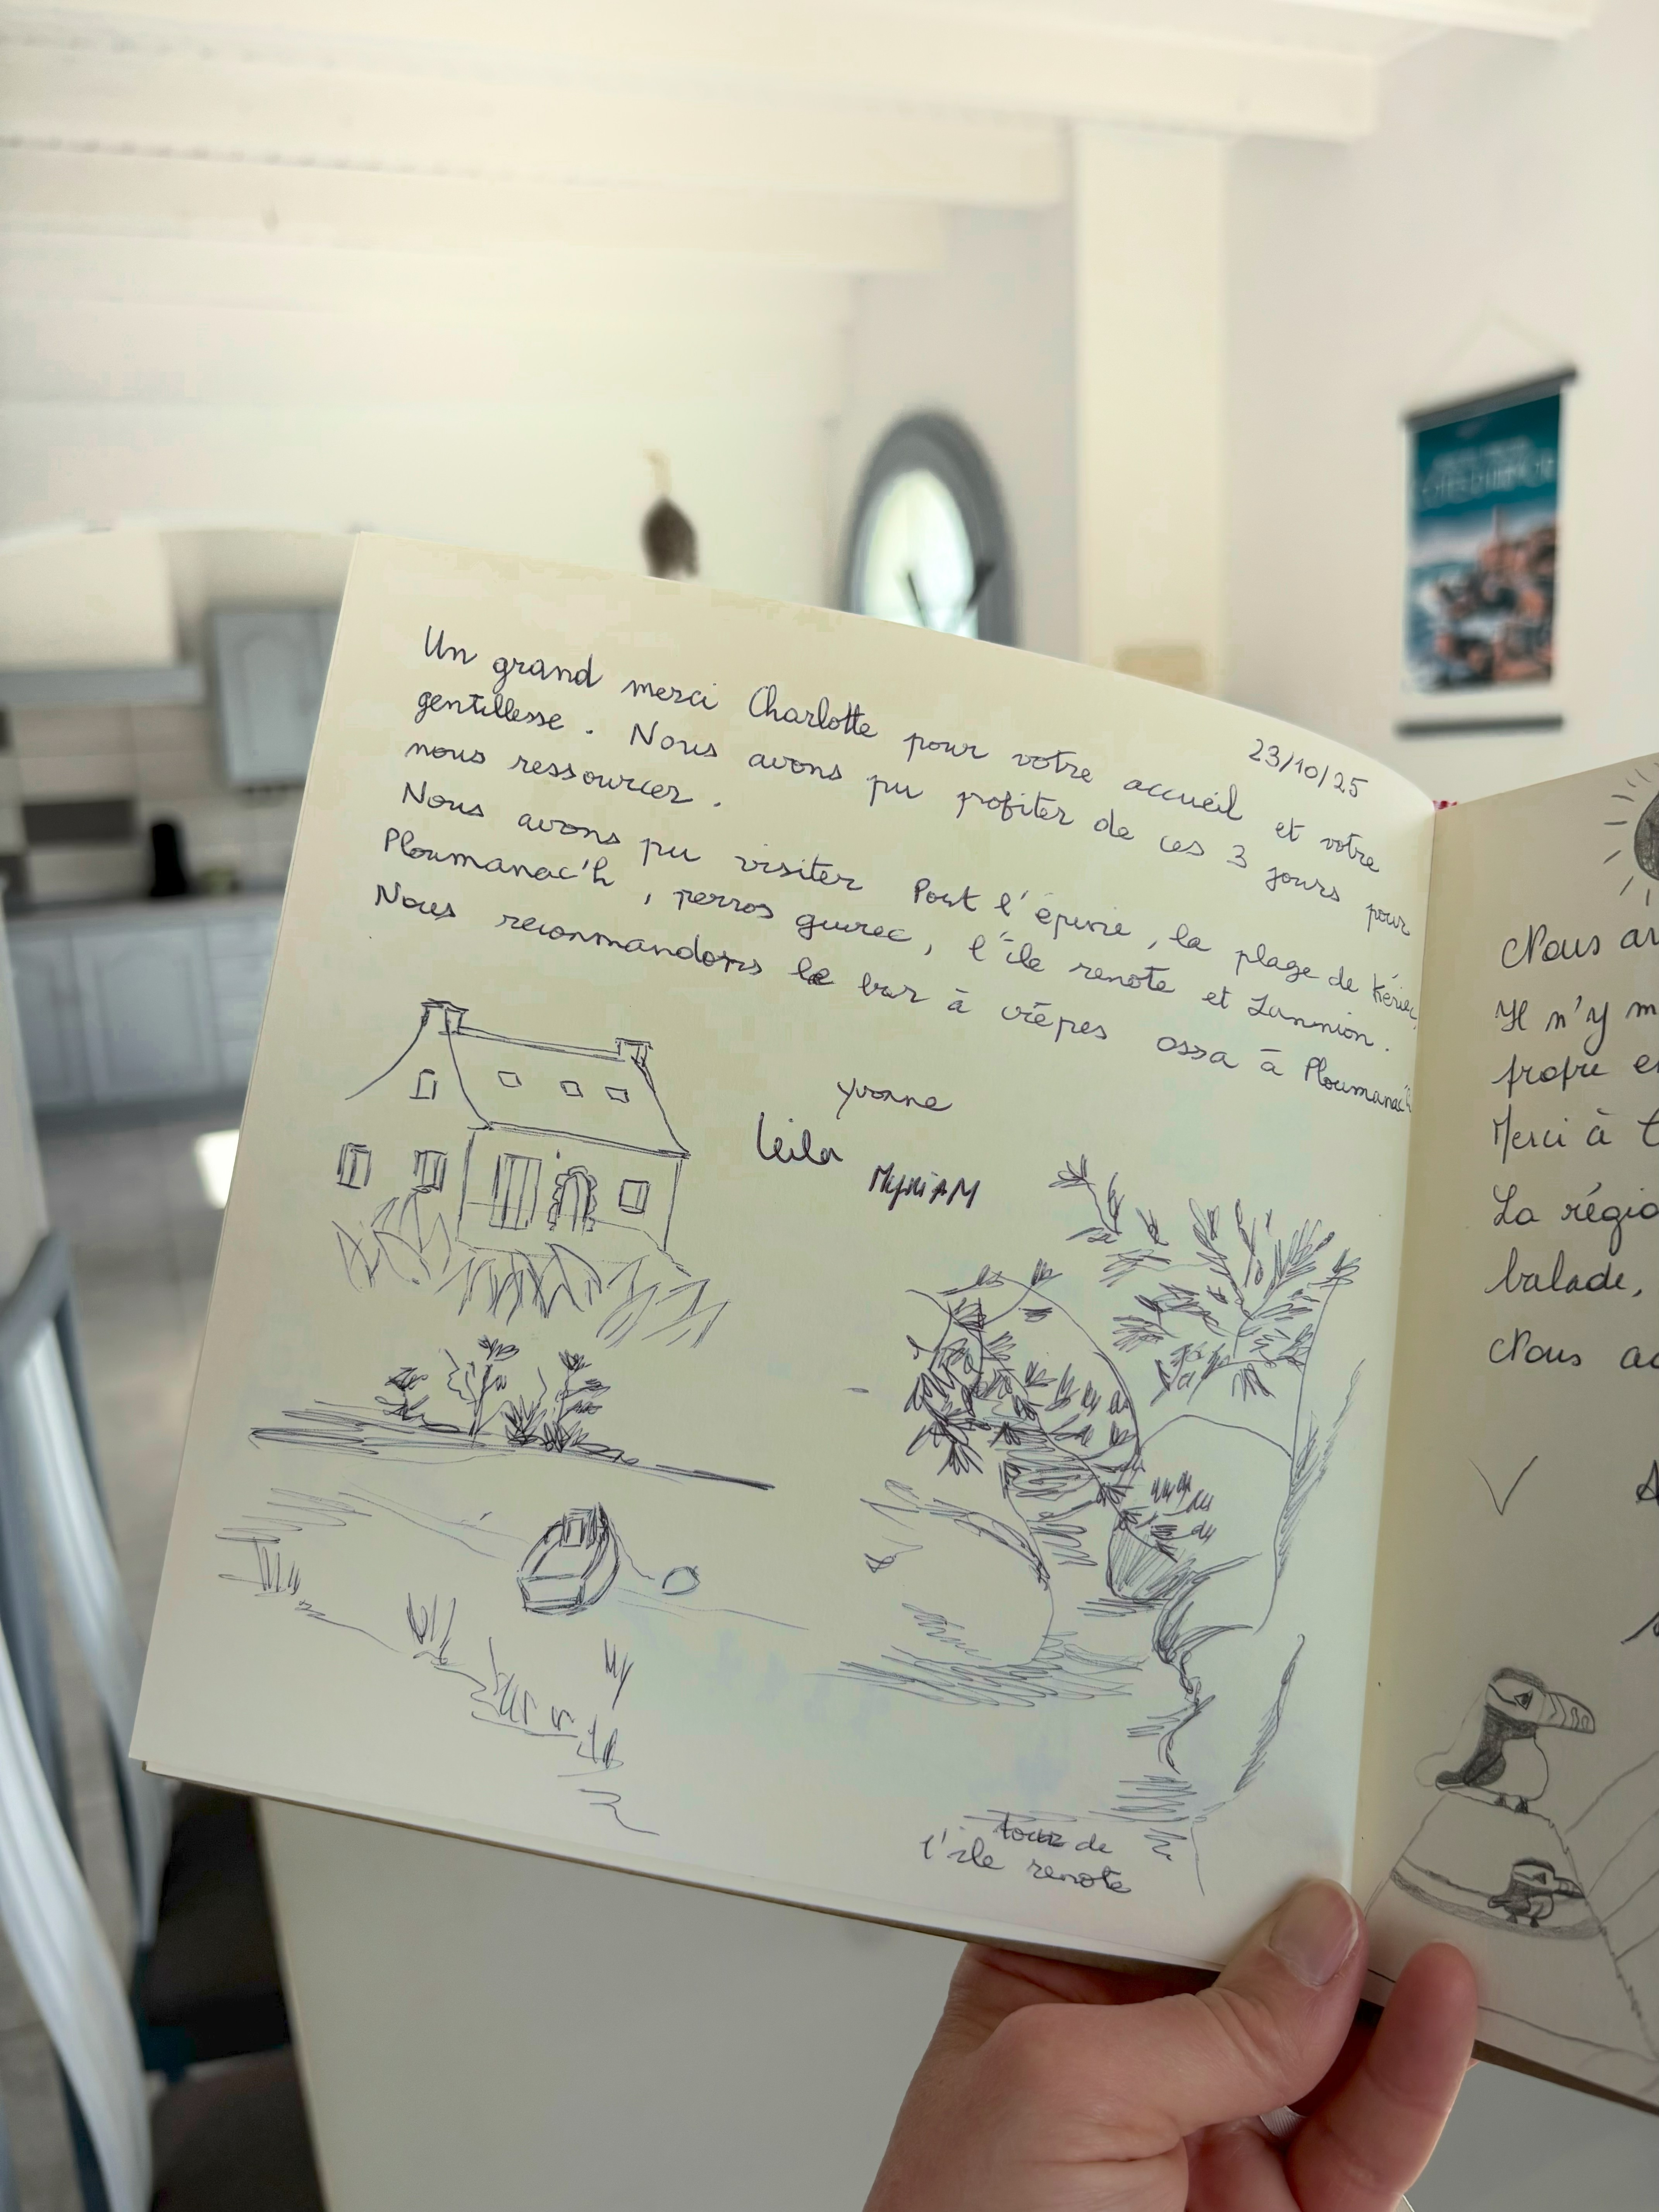 23/10/25
Un grand merci Charlotte pour votre accueil et votre
gentillesse. Nous avons pu profiter de ces 3 jours pour
nous ressourcer.
Nous avons pu visiter Port l'épine, la plage de Kériec,
Ploumanac'h, perros guirec, l'île renote et Lannion.
Nous recommandons le bar à crêpes ossa à Ploumanac'h
Yvonne
Leila
MyriAM
tour de
l'île renote
Nous
Il n'y
propre
Merci à
La
balade,
Nous